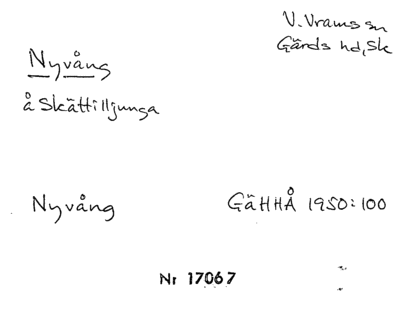 V. Vrams sn
Gärds hd, Sk
Nyvång
å Skättilljunga
Nyvång
GäHHÅ 1950:100
Nr 17067